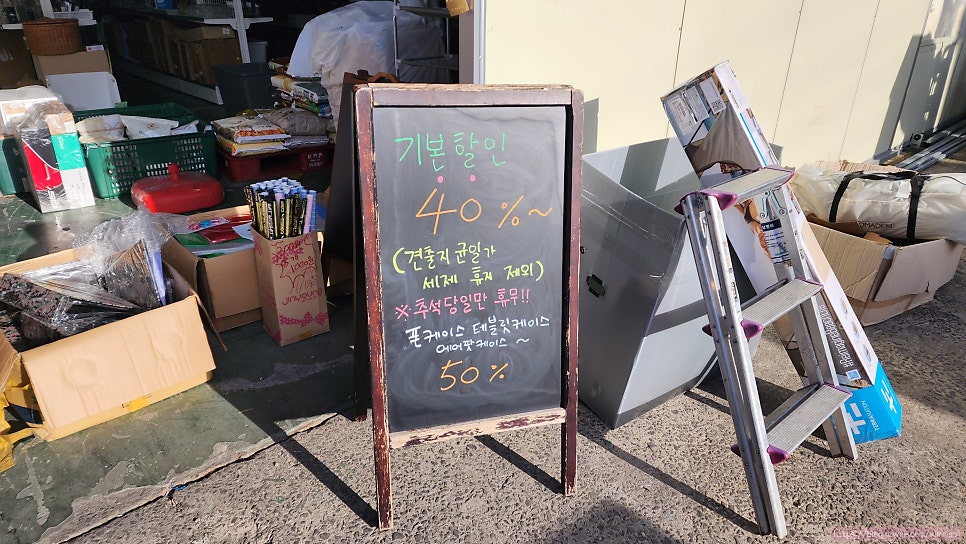 기본할인
40%~
(견출지 균일가
세제 휴지 제외)
※추석당일만 휴무!!
폰케이스 테블릿케이스
에어팟케이스 ~
50%